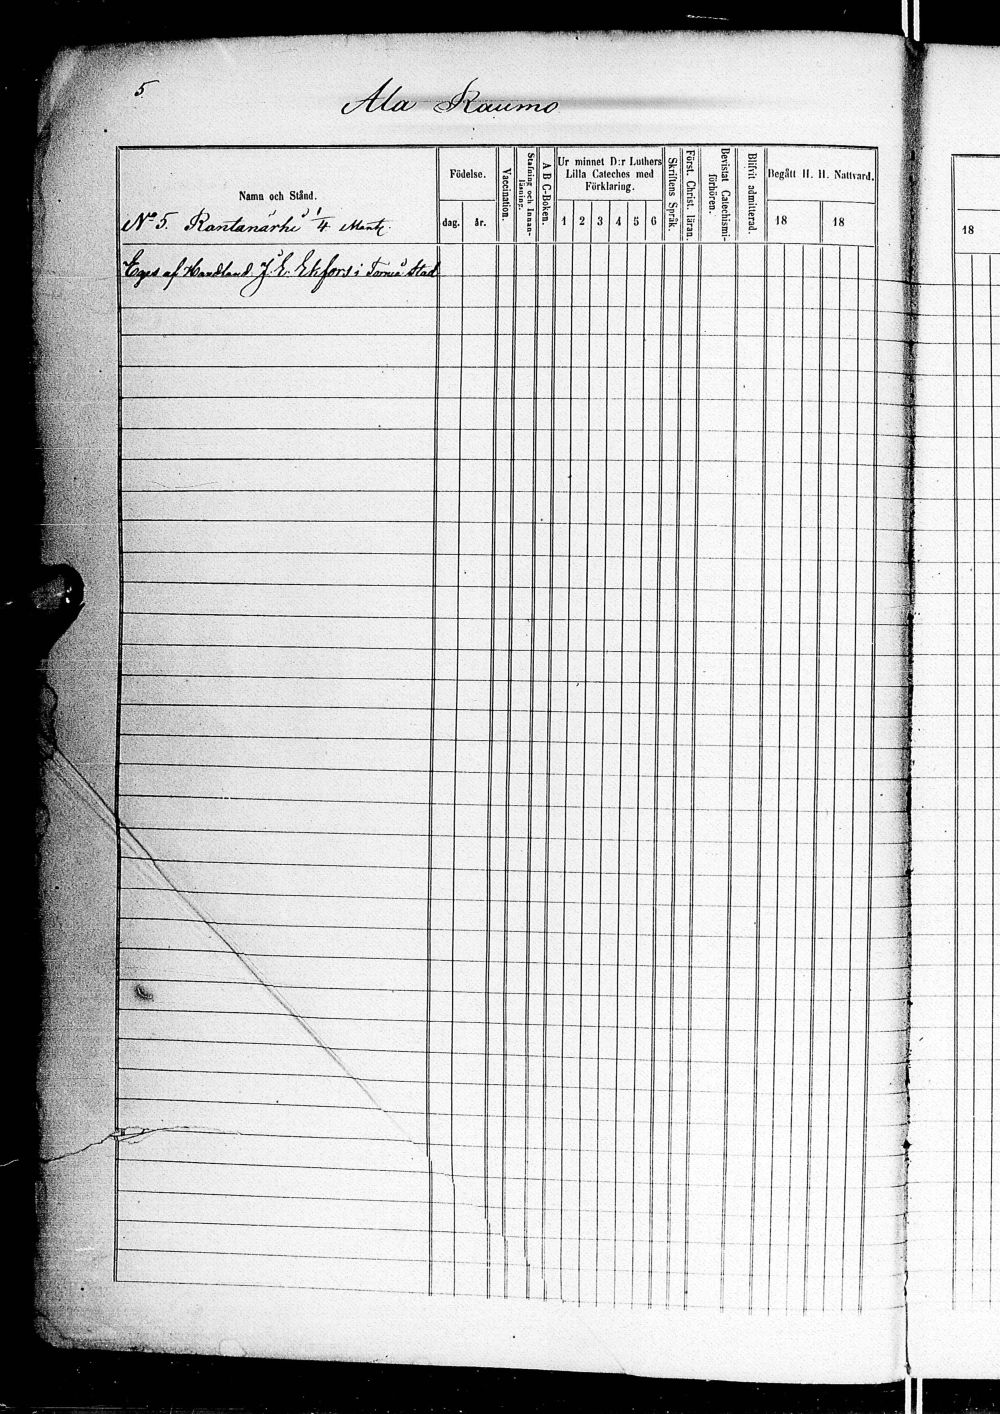 5.
Ala Raumo
Namn och Stånd.
Födelse.
dag.
år.
Vaccination.
Stafning och Innan-
läsning.
A B C-Boken.
Ur minnet D:r Luthers
Lilla Cateches med
Förklaring.
1 2 3 4 5 6
Skriftens Språk.
Först. Christ. läran.
Bevistat Catechismi-
förhören.
Blifvit admitterad.
Begått H. H. Nattvard.
18
18
18
No 5. Rantanärhi 1/4 Mantl.
Eges af Handland. J. E. Ekfors i Torneå Stad